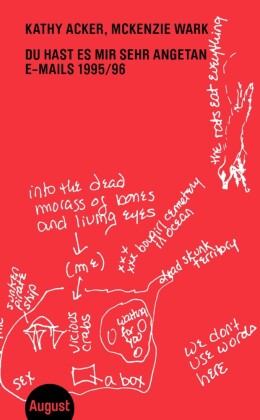 KATHY ACKER, MCKENZIE WARK
DU HAST ES MIR SEHR ANGETAN
E-MAILS 1995/96
the rats eat everything
into the dead
morass of bones
and living eyes
(ME)
xxx bougirl cemetery
xxx in ocean
dead skunk
territory
sunken
pirate
ship
vicious
crabs
waiting
for
you
we don't
use words
here
sex
a box
August